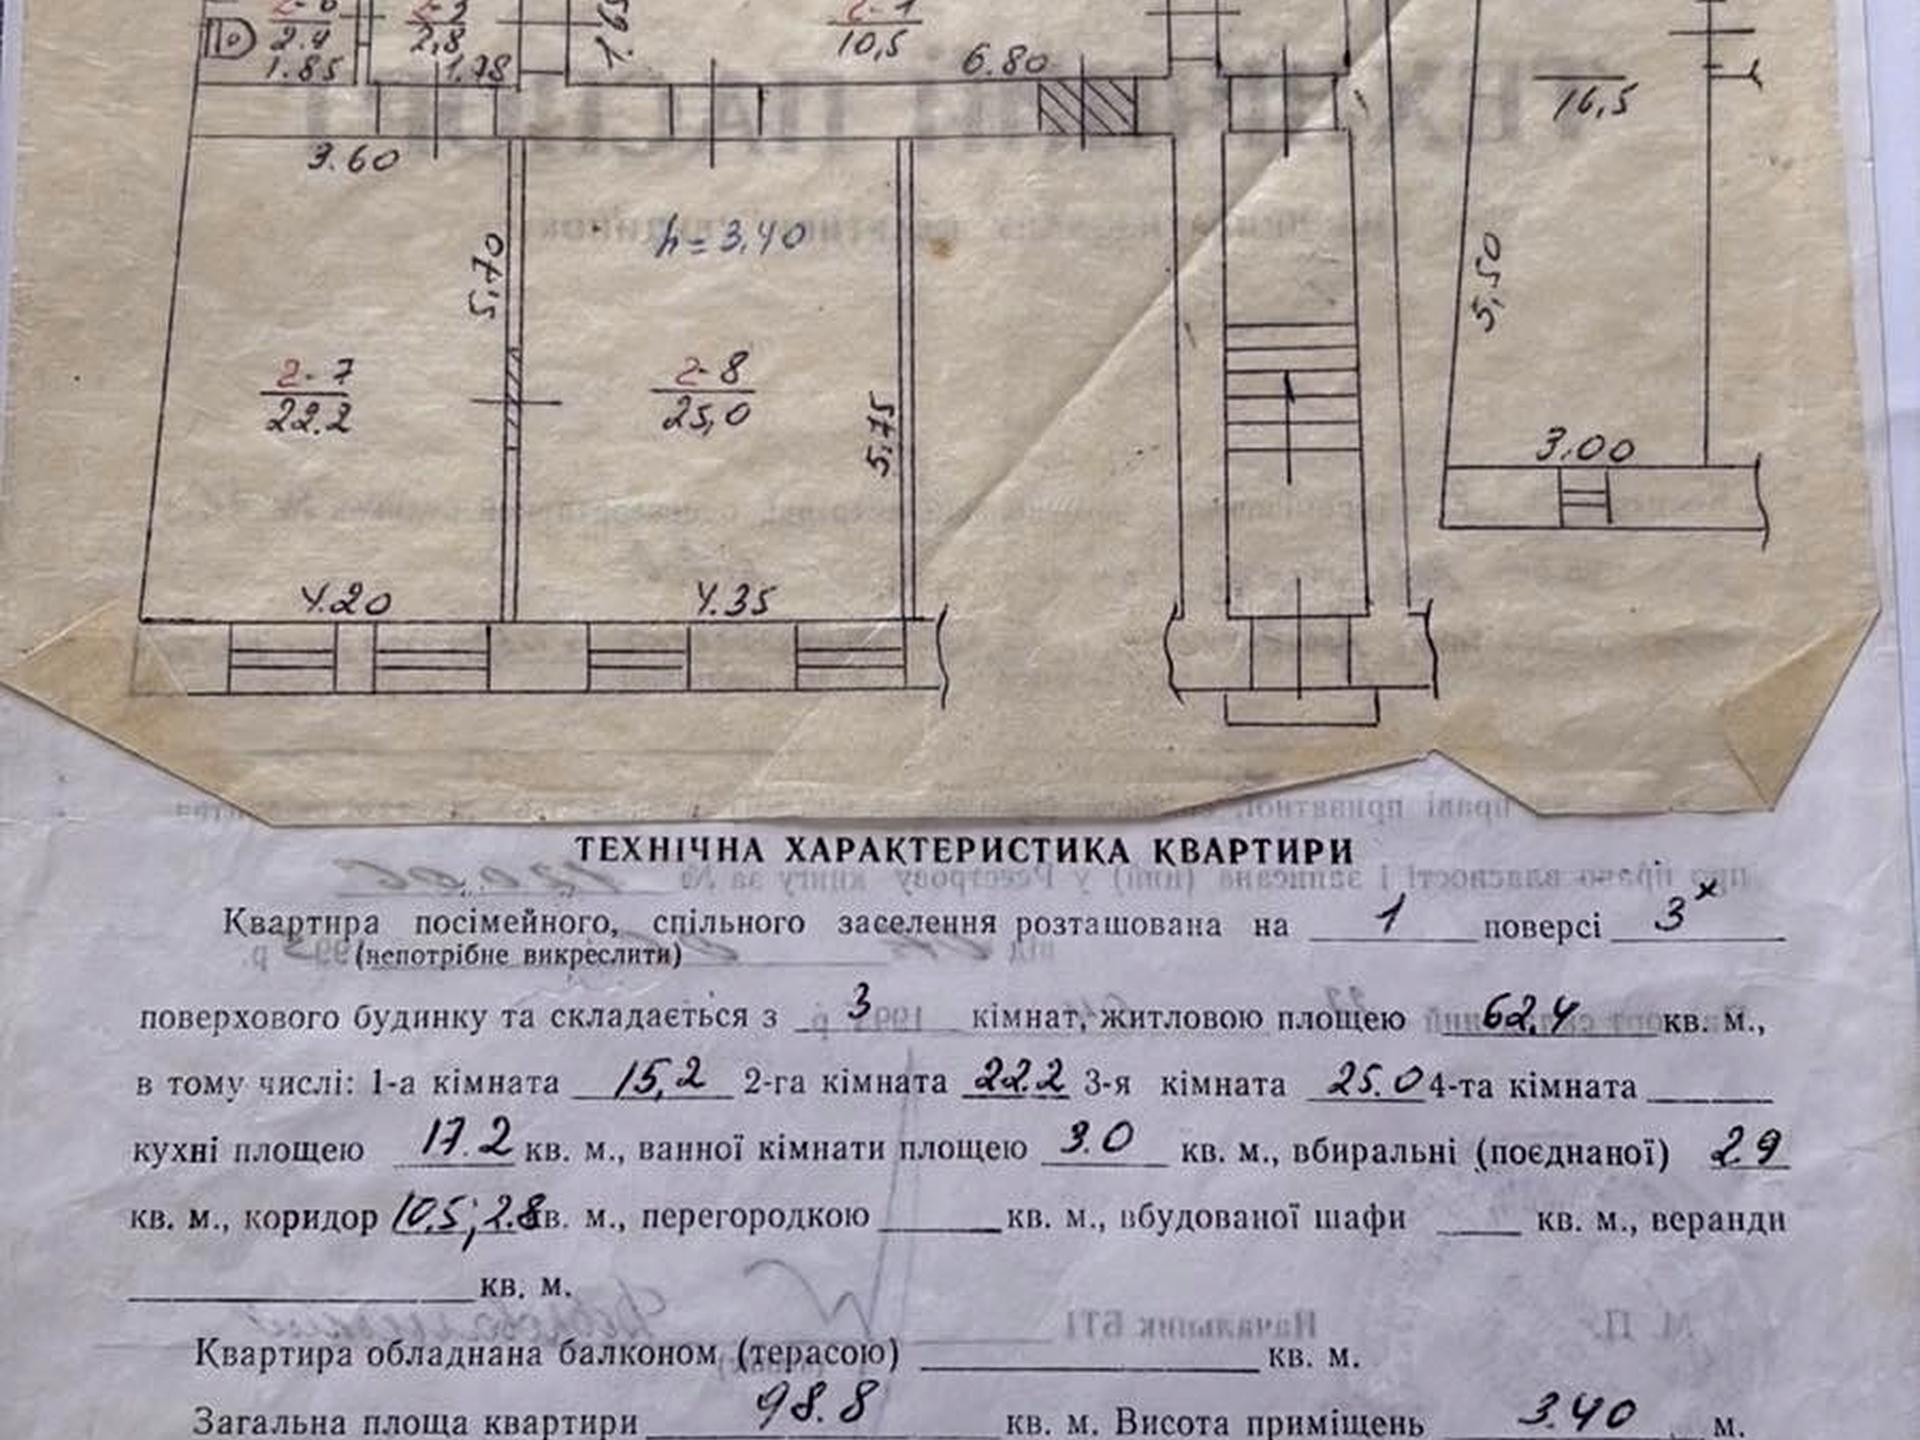 2-6
2.4
1.85
2-5
2,8
1.78
1.65
2-1
10,5
6.80
16,5
3.60
5,70
h = 3,40
5,50
2-7
22.2
2-8
25,0
5,75
3,00
4.20
4.35
ТЕХНІЧНА ХАРАКТЕРИСТИКА КВАРТИРИ
Квартира посімейного, спільного заселення розташована на 1 поверсі 3х
(непотрібне викреслити)
поверхового будинку та складається з 3 кімнат, житловою площею 62,4 кв. м.,
в тому числі: 1-а кімната 15,2 2-га кімната 22.2 3-я кімната 25.0 4-та кімната
кухні площею 17.2 кв. м., ванної кімнати площею 3.0 кв. м., вбиральні (поєднаної) 2.9
кв. м., коридор 10,5; 2.8 кв. м., перегородкою кв. м., вбудованої шафи кв. м., веранди
кв. м.
Квартира обладнана балконом (терасою) кв. м.
Загальна площа квартири 98.8 кв. м. Висота приміщень 3.40 м.